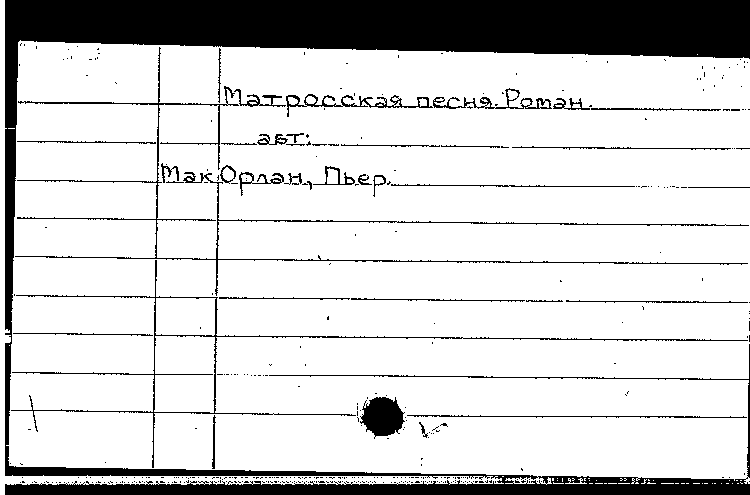 Матросская песня. Роман.
авт:
Мак Орлан, Пьер.